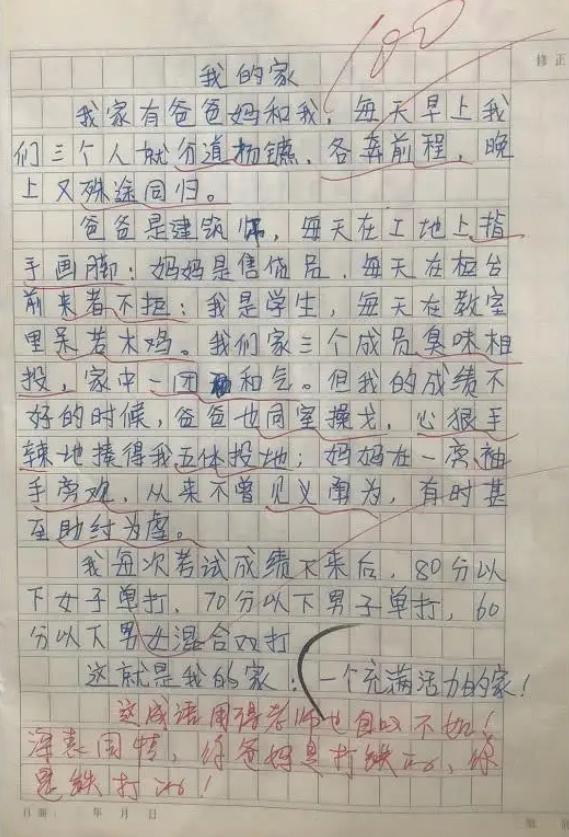 100
修正
我的家
我家有爸爸妈和我，每天早上我
们三个人就分道扬镳，各奔前程，晚
上又殊途同归。
爸爸是建筑师，每天在工地上指
手画脚；妈妈是售货员，每天在柜台
前来者不拒；我是学生，每天在教室
里呆若木鸡。我们家三个成员臭味相
投，家中一团和气。但我的成绩不
好的时候，爸爸也同室操戈，心狠手
辣地揍得我五体投地；妈妈在一旁袖
手旁观，从来不曾见义勇为，有时甚
至助纣为虐。
我每次考试成绩下来后，80分以
下女子单打，70分以下男子单打，60
分以下男女混合双打
这就是我的家：一个充满活力的家！
这成语用得老师也自叹不如！
深表同情，你爸妈是打铁的，你
是铁打的！
日期： 年 月 日